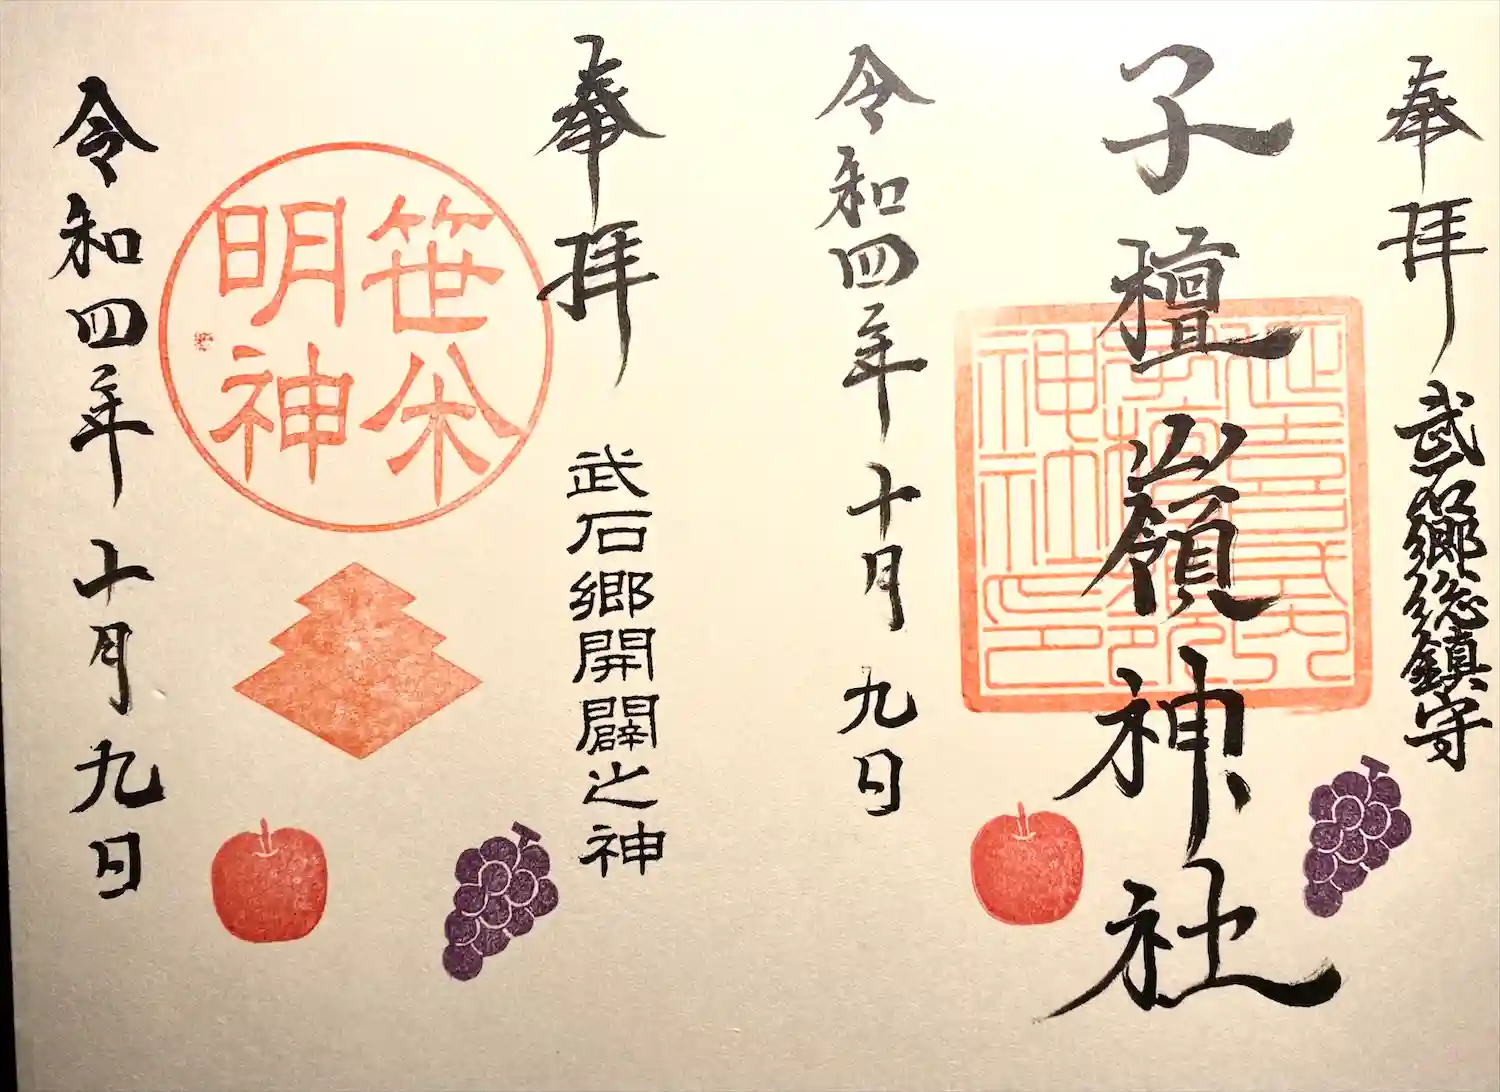 奉拝 武石郷総鎮守
子檀嶺神社
延喜式内
子檀嶺
神社印
令和四年十月九日
奉拝
武石郷開闢之神
笹
明神
令和四年十月九日